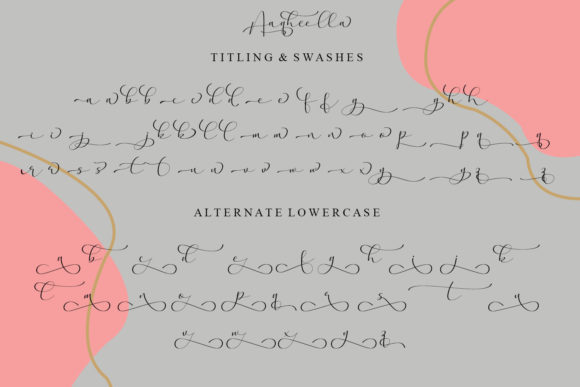 TITLING & SWASHES
a a b b c c d d e e f f g g h h
i i j j k k l l m m n n o o p p q q
r r s s t t u u v v w w x x y y z z
ALTERNATE LOWERCASE
a b c d e f g h i j k
l m n o p q r s t u
v w x y z